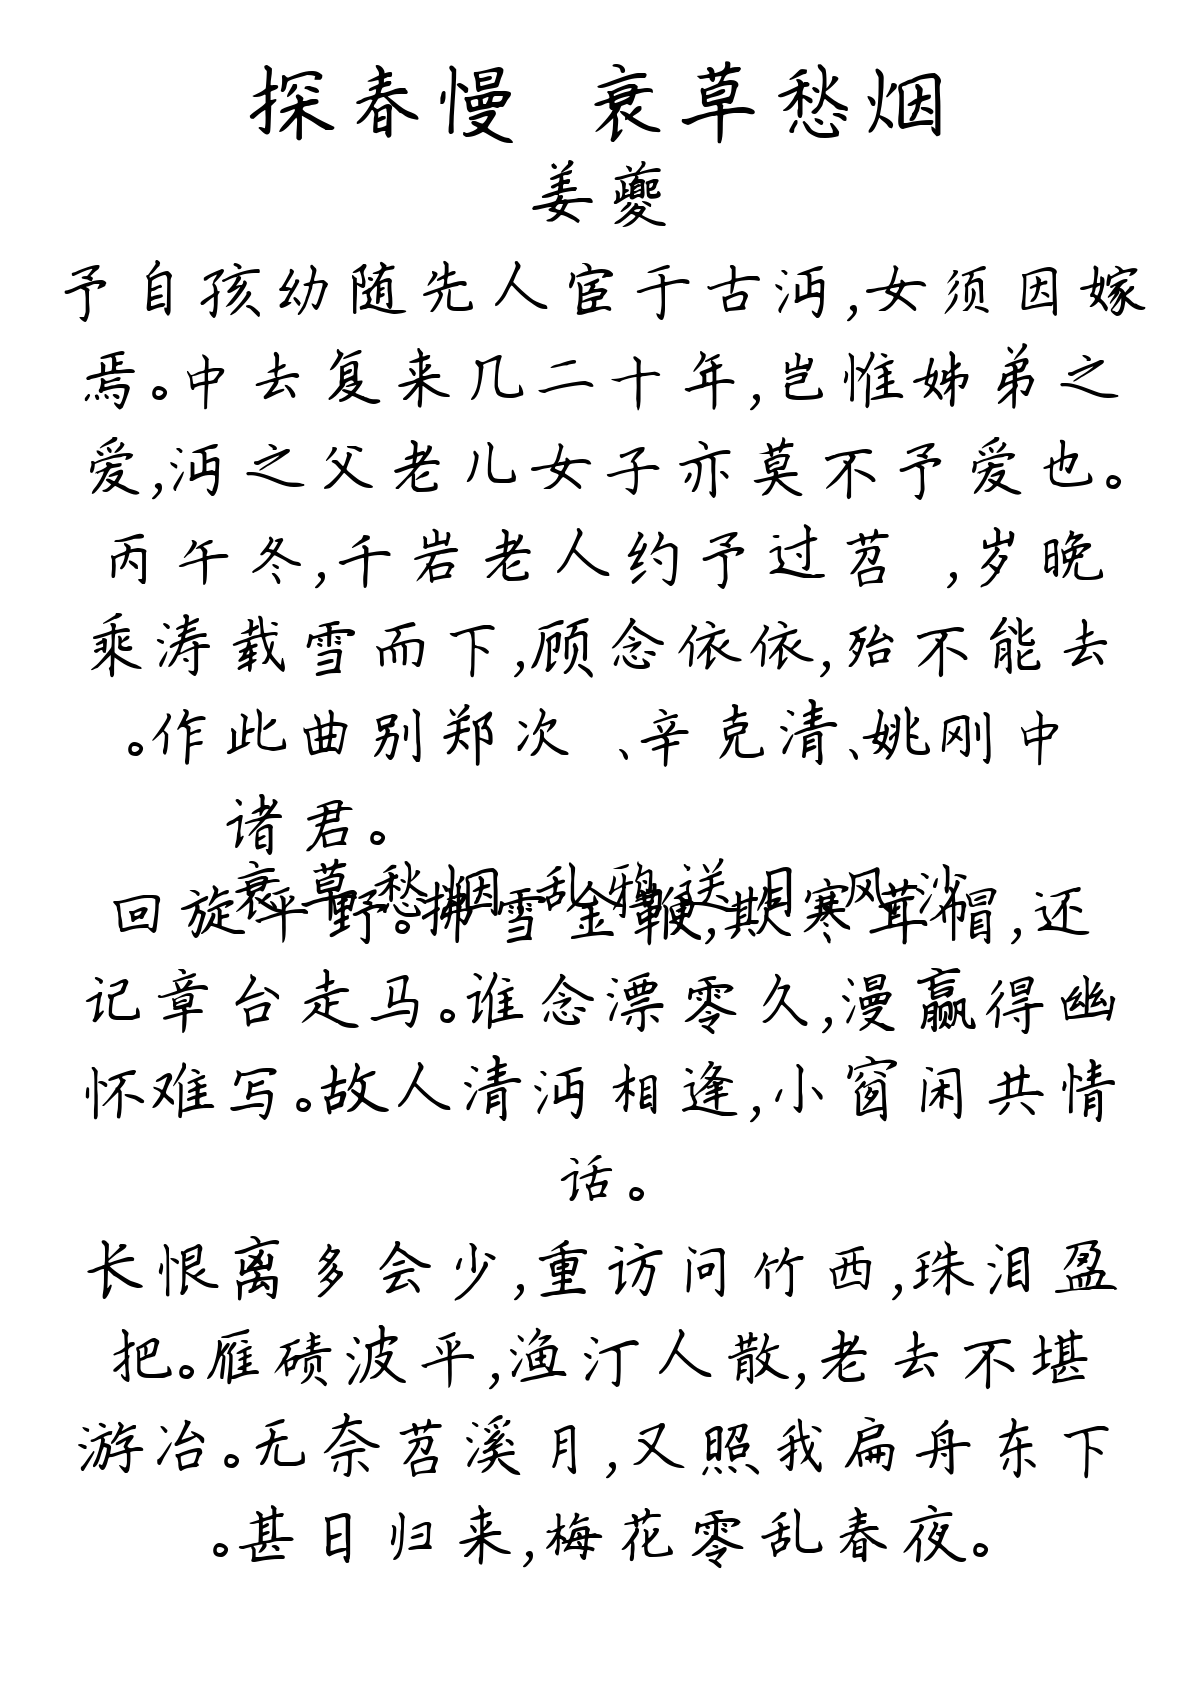 探春慢 衰草愁烟
姜夔
予自孩幼随先人宦于古沔,女须因嫁
焉。中去复来几二十年,岂惟姊弟之
爱,沔之父老儿女子亦莫不予爱也。
丙午冬,千岩老人约予过苕 ,岁晚
乘涛载雪而下,顾念依依,殆不能去
。作此曲别郑次 、辛克清、姚刚中
诸君。
衰草愁烟,乱鸦送日,风沙
回旋平野。拂雪金鞭,欺寒茸帽,还
记章台走马。谁念漂零久,漫赢得幽
怀难写。故人清沔相逢,小窗闲共情
话。
长恨离多会少,重访问竹西,珠泪盈
把。雁碛波平,渔汀人散,老去不堪
游冶。无奈苕溪月,又照我扁舟东下
。甚日归来,梅花零乱春夜。